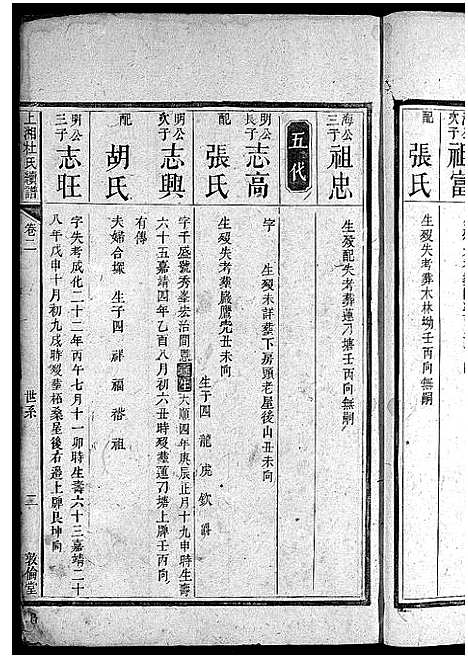 次子祖富
配張氏 生歿失考葬木林坳壬丙向無嗣
海公三子祖忠 生歿配失考葬蓮刀塘壬丙向無嗣
五代
明公長子志高 字 生歿未詳葬下房頭老屋後山丑未向
配張氏 生歿失考葬嚴鷹壳丑未向
生子四 龍 虎 欽 爵
明公次子志興 字千盛號秀峯宏治間恩 生天順四年庚辰正月十九申時生壽
六十五嘉靖四年乙酉八月初六丑時歿葬蓮刀塘上脾壬丙向
有傳
配胡氏 夫婦合塚 生子四 祥 福 禧 祖
明公三子志旺 字失考成化二十二年丙午七月十一卯時生壽六十三嘉靖二十
八年戊申十月初九戌時歿葬栢桑屋後右邊上脾艮坤向
上湘杜氏續譜 卷二 世系 三 敦倫堂